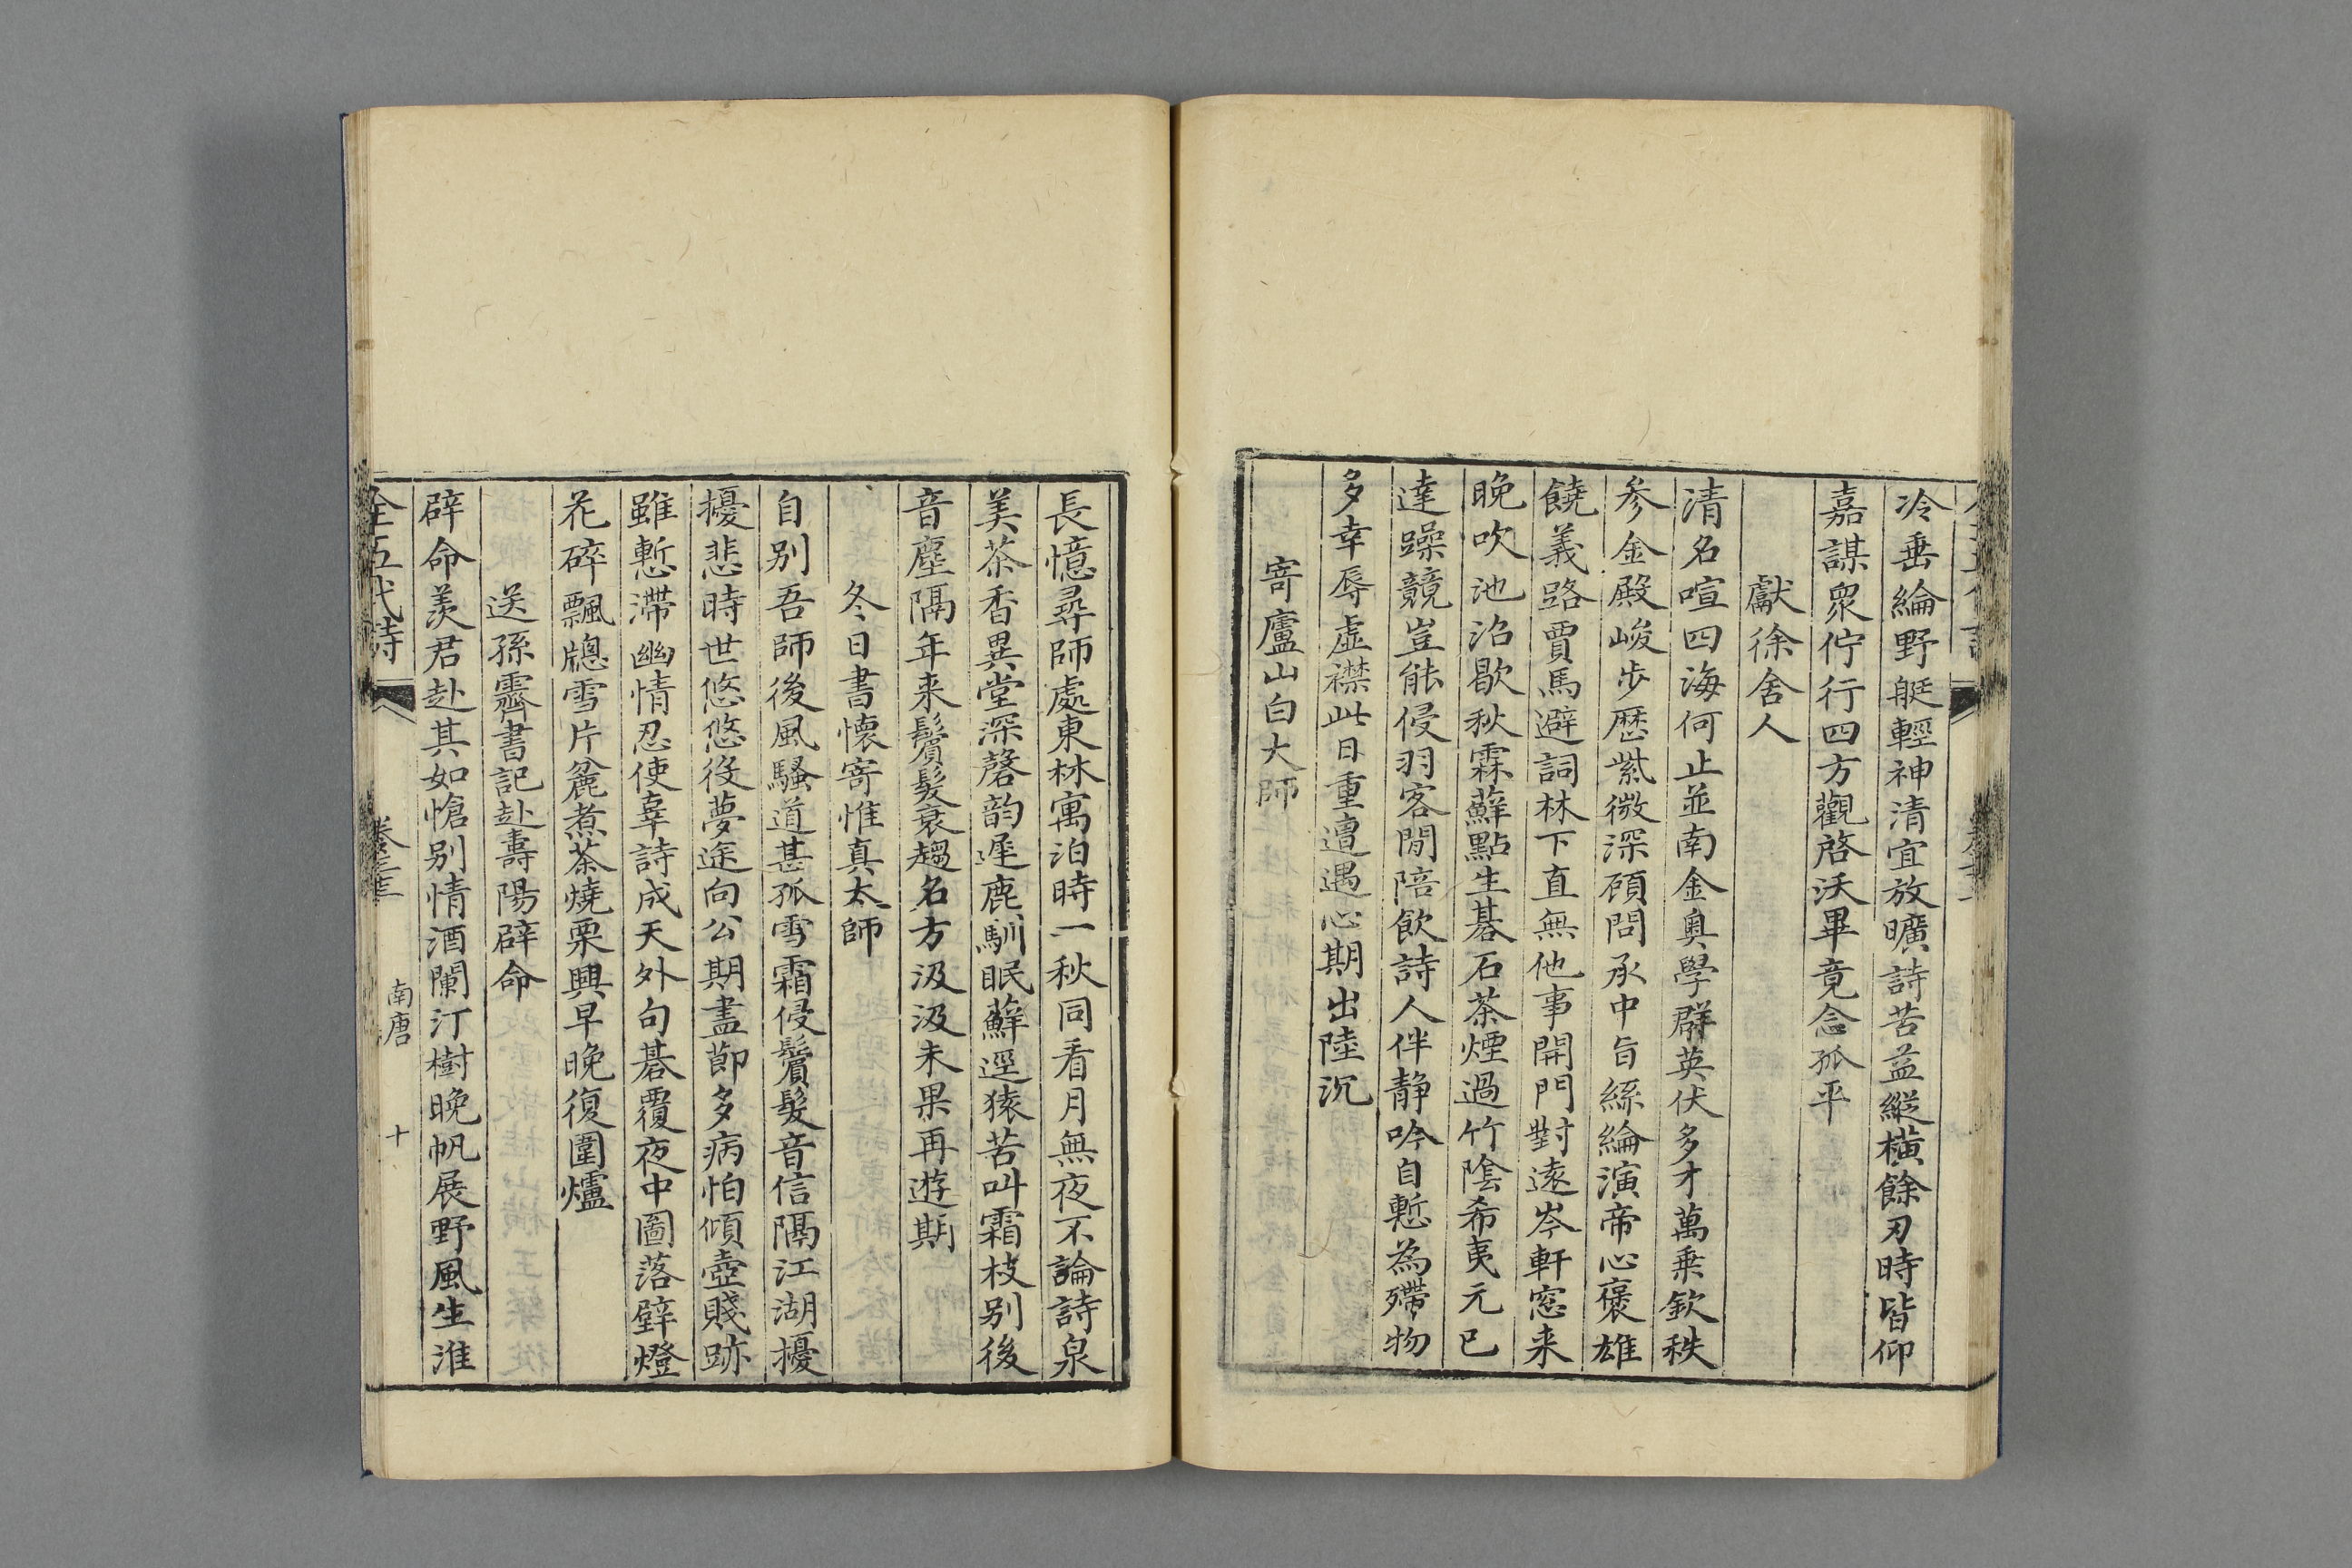 冷垂綸野艇輕神清宜放曠詩苦益縱橫餘刃時皆仰
嘉謀衆佇行四方觀啓沃畢竟念孤平
獻徐舍人
清名喧四海何止並南金奥學群英伏多才萬乗欽秩
参金殿峻步歷紫微深顧問承中旨絲綸演帝心褒雄
饒義路賈馬避詞林下直無他事開門對遠岑軒窓来
晚吹池沼歇秋霖蘚點生碁石茶煙過竹陰希夷元已
達躁競豈能侵羽客閒陪飲詩人伴静吟自慙為殢物
多幸辱虛襟此日重遭遇心期出陸沉
寄廬山白大師
長憶尋師處東林寓泊時一秋同看月無夜不論詩泉
美茶香異堂深磬韵遲鹿馴眠蘚逕猿苦叫霜枝别後
音塵隔年来鬢髮衰趨名方汲汲未果再遊期
冬日書懷寄惟真太師
自别吾師後風騷道甚孤雪霜侵鬢髮音信隔江湖擾
擾悲時世悠悠役夢途向公期盡節多病怕傾壺賤跡
雖慙滯幽情忍使辜詩成天外句碁覆夜中圖落壁燈
花碎飄牕雪片麄煮茶燒栗興早晚復圍爐
送孫霽書記赴壽陽辟命
辟命羨君赴其如愴别情酒闌汀樹晚帆展野風生淮
全五代詩
卷三
南唐
十